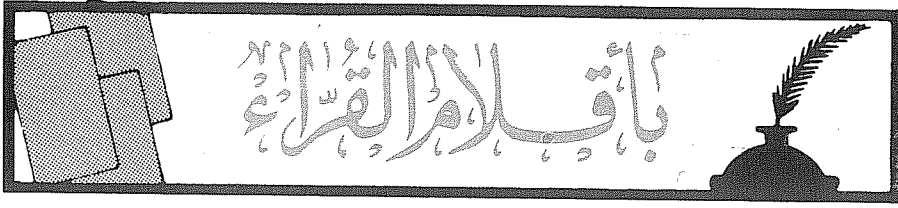 بأقلام القرّاء